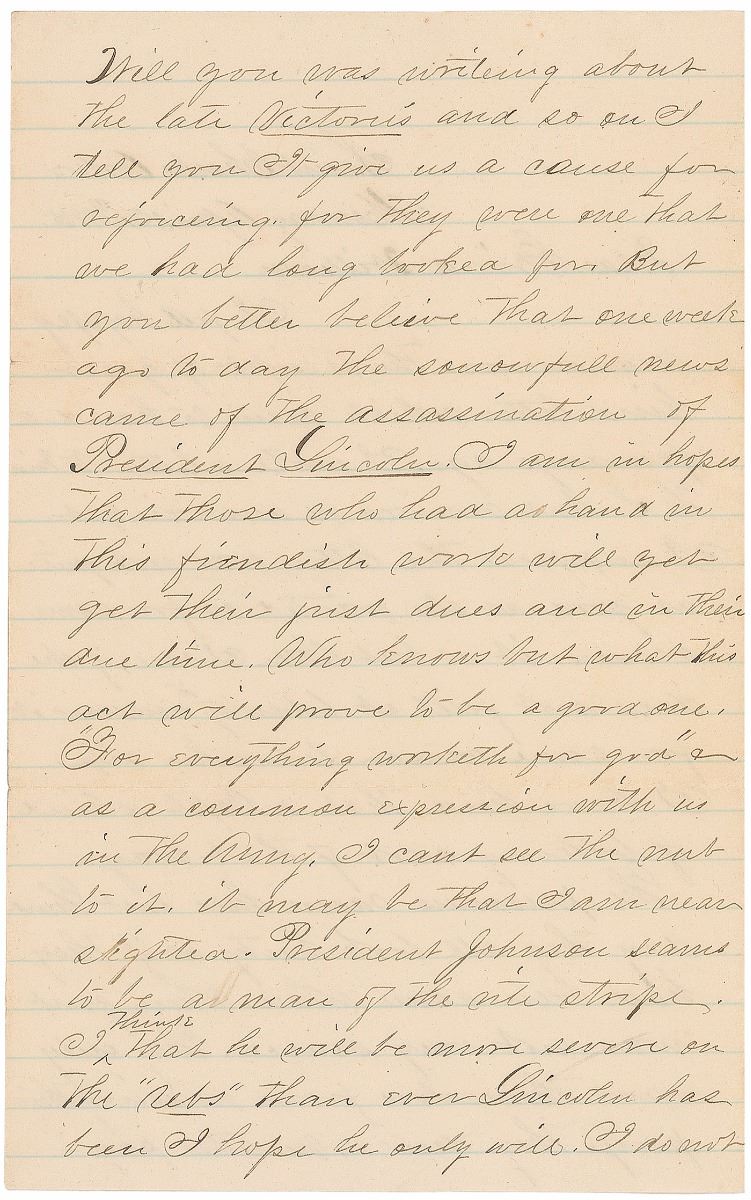 Will you was writeing about
the late Victoris and so on I
tell you It give us a cause for
rejoiceing. for they were one that
we had long looked for. But
you better beleive that one week
ago to day the sorrowfull news
came of the assassination of
President Lincoln. I am in hopes
that those who had a hand in
this fiendish work will yet
get their just dues and in their
due time. Who knows but what this
act will prove to be a good one.
"For everything worketh for good" &
as a common expression with us
in the Army. I cant see the nub
to it. it may be that I am near
sighted. President Johnson seams
to be a man of the rite stripe.
I think that he will be more severe on
the "rebs" than ever Lincoln has
been I hope he only will. I do not